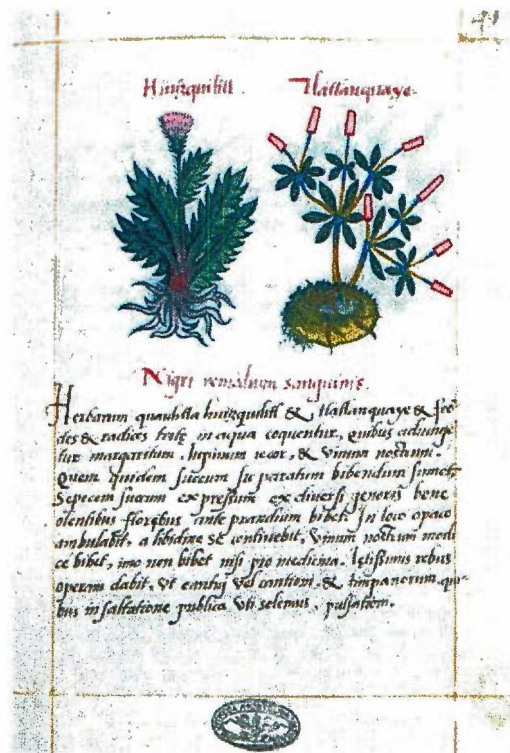 41
Huitzquilitl. Tlatlanquaye.
Nigri remedium sanguinis.
Herbarum quauhtla huitzquilitl & tlatlanquaye &
des & radices tritę in aqua coquentur, quibus adiunge
tur margaritum, lupinum iecor, & vinum nostrum.
Quem quidem succum seperatim bibendum sumet
Sepe cem succum expressum ex diversi generis bene
olentibus floribus ante prandium bibet. In loco opaco
ambulabit, a libidine se continebit, vinum nostrum modi
ce bibet, imo non bibet nisi pro medicina. lętissimis rebus
operam dabit, vt cantui vel cantioni, & timpanorum qui
bus in saltatione publica vti solemus, pulsationi.